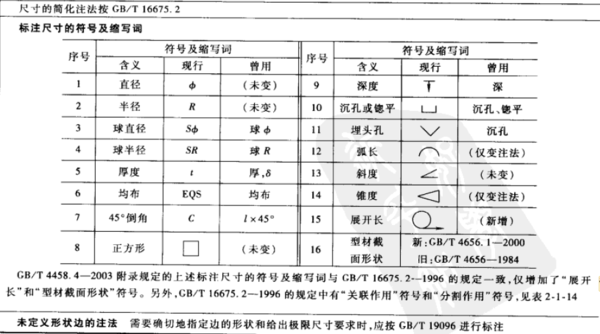 尺寸的简化注法按 GB/T 16675.2
标注尺寸的符号及缩写词
序号 符号及缩写词 序号 符号及缩写词
含义 现行 曾用 含义 现行 曾用
1 直径 ϕ (未变) 9 深度 ↧ 深
2 半径 R (未变) 10 沉孔或锪平 ⌴ 沉孔、锪平
3 球直径 Sϕ 球ϕ 11 埋头孔 ⌵ 沉孔
4 球半径 SR 球R 12 弧长 ⌒ (仅变注法)
5 厚度 t 厚,δ 13 斜度 ∠ (未变)
6 均布 EQS 均布 14 锥度 ◁ (仅变注法)
7 45°倒角 C l×45° 15 展开长 (新增)
8 正方形 □ (未变) 16 型材截面形状 新:GB/T 4656.1—2000
旧:GB/T 4656—1984
GB/T 4458.4—2003 附录规定的上述标注尺寸的符号及缩写词与 GB/T 16675.2—1996 的规定一致,仅增加了“展开
长”和“型材截面形状”符号。另外,GB/T 16675.2—1996 的规定中有“关联作用”符号和“分割作用”符号,见表 2-1-14
未定义形状边的注法 需要确切地指定边的形状和给出极限尺寸要求时,应按 GB/T 19096 进行标注